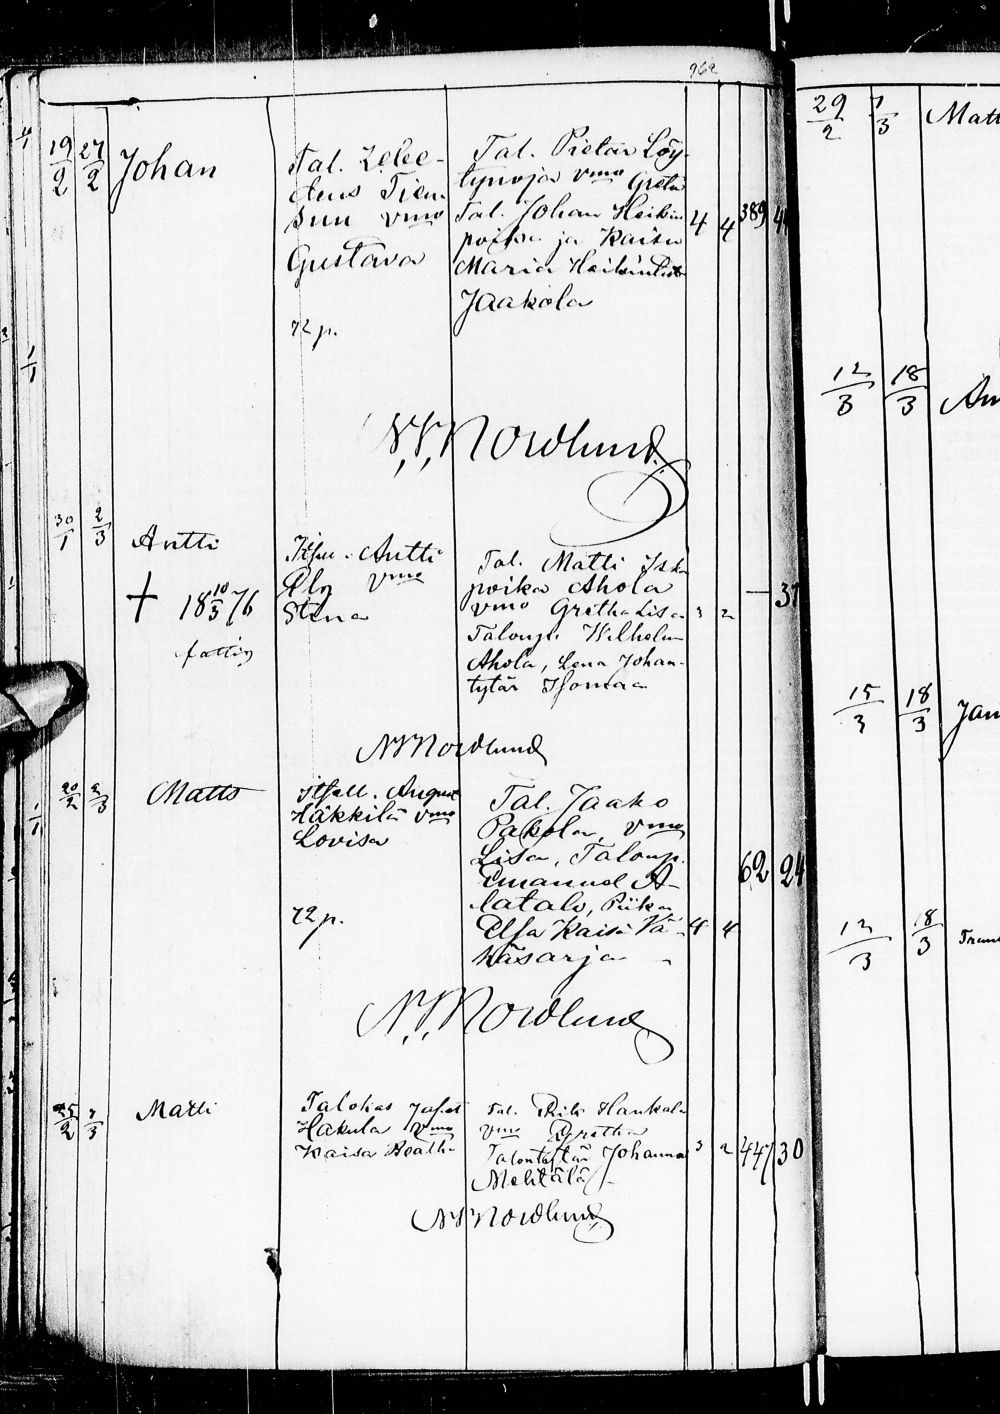 19/2 27/2 Johan
Tal.
vmo
Gustava
72 p.
Tal. Pietar Löy-
tynoja vmo Greta
Tal. Johan Heikin
poika ja Kaisa
Maria
Jaakola
4 4 389
N. N. Nordlund.
30/1 2/3 Antti
+ 18 10/3 76
Itsel. Antti
vmo
Stina
Tal. Matti
poika Ahola
vmo Gretha Lisa
Wilhelm
Ahola, Lena Johan-
tytär
3 2 — 37
N N Nordlund
20/2 2/3 Matts
Itsell. August
Häkkilä vmo
Lovisa
72 p.
Tal. Jaako
Pakola, vmo
Lisa, Taloup.
Emanuel A-
latalo, Piika
Elsa Kaisa Vä-
häsarja
4 4 62 24
N. N. Nordlund
25/2 Matti
Hakula vmo
Kaisa
Tal. Erik Hankala
vmo Gretha
Johanna
Mehtälä
3 2 447 30
N N Nordlund
29/2 7/3 Matt
12/3 18/3 An
15/3 18/3 Jan
12/3 18/3